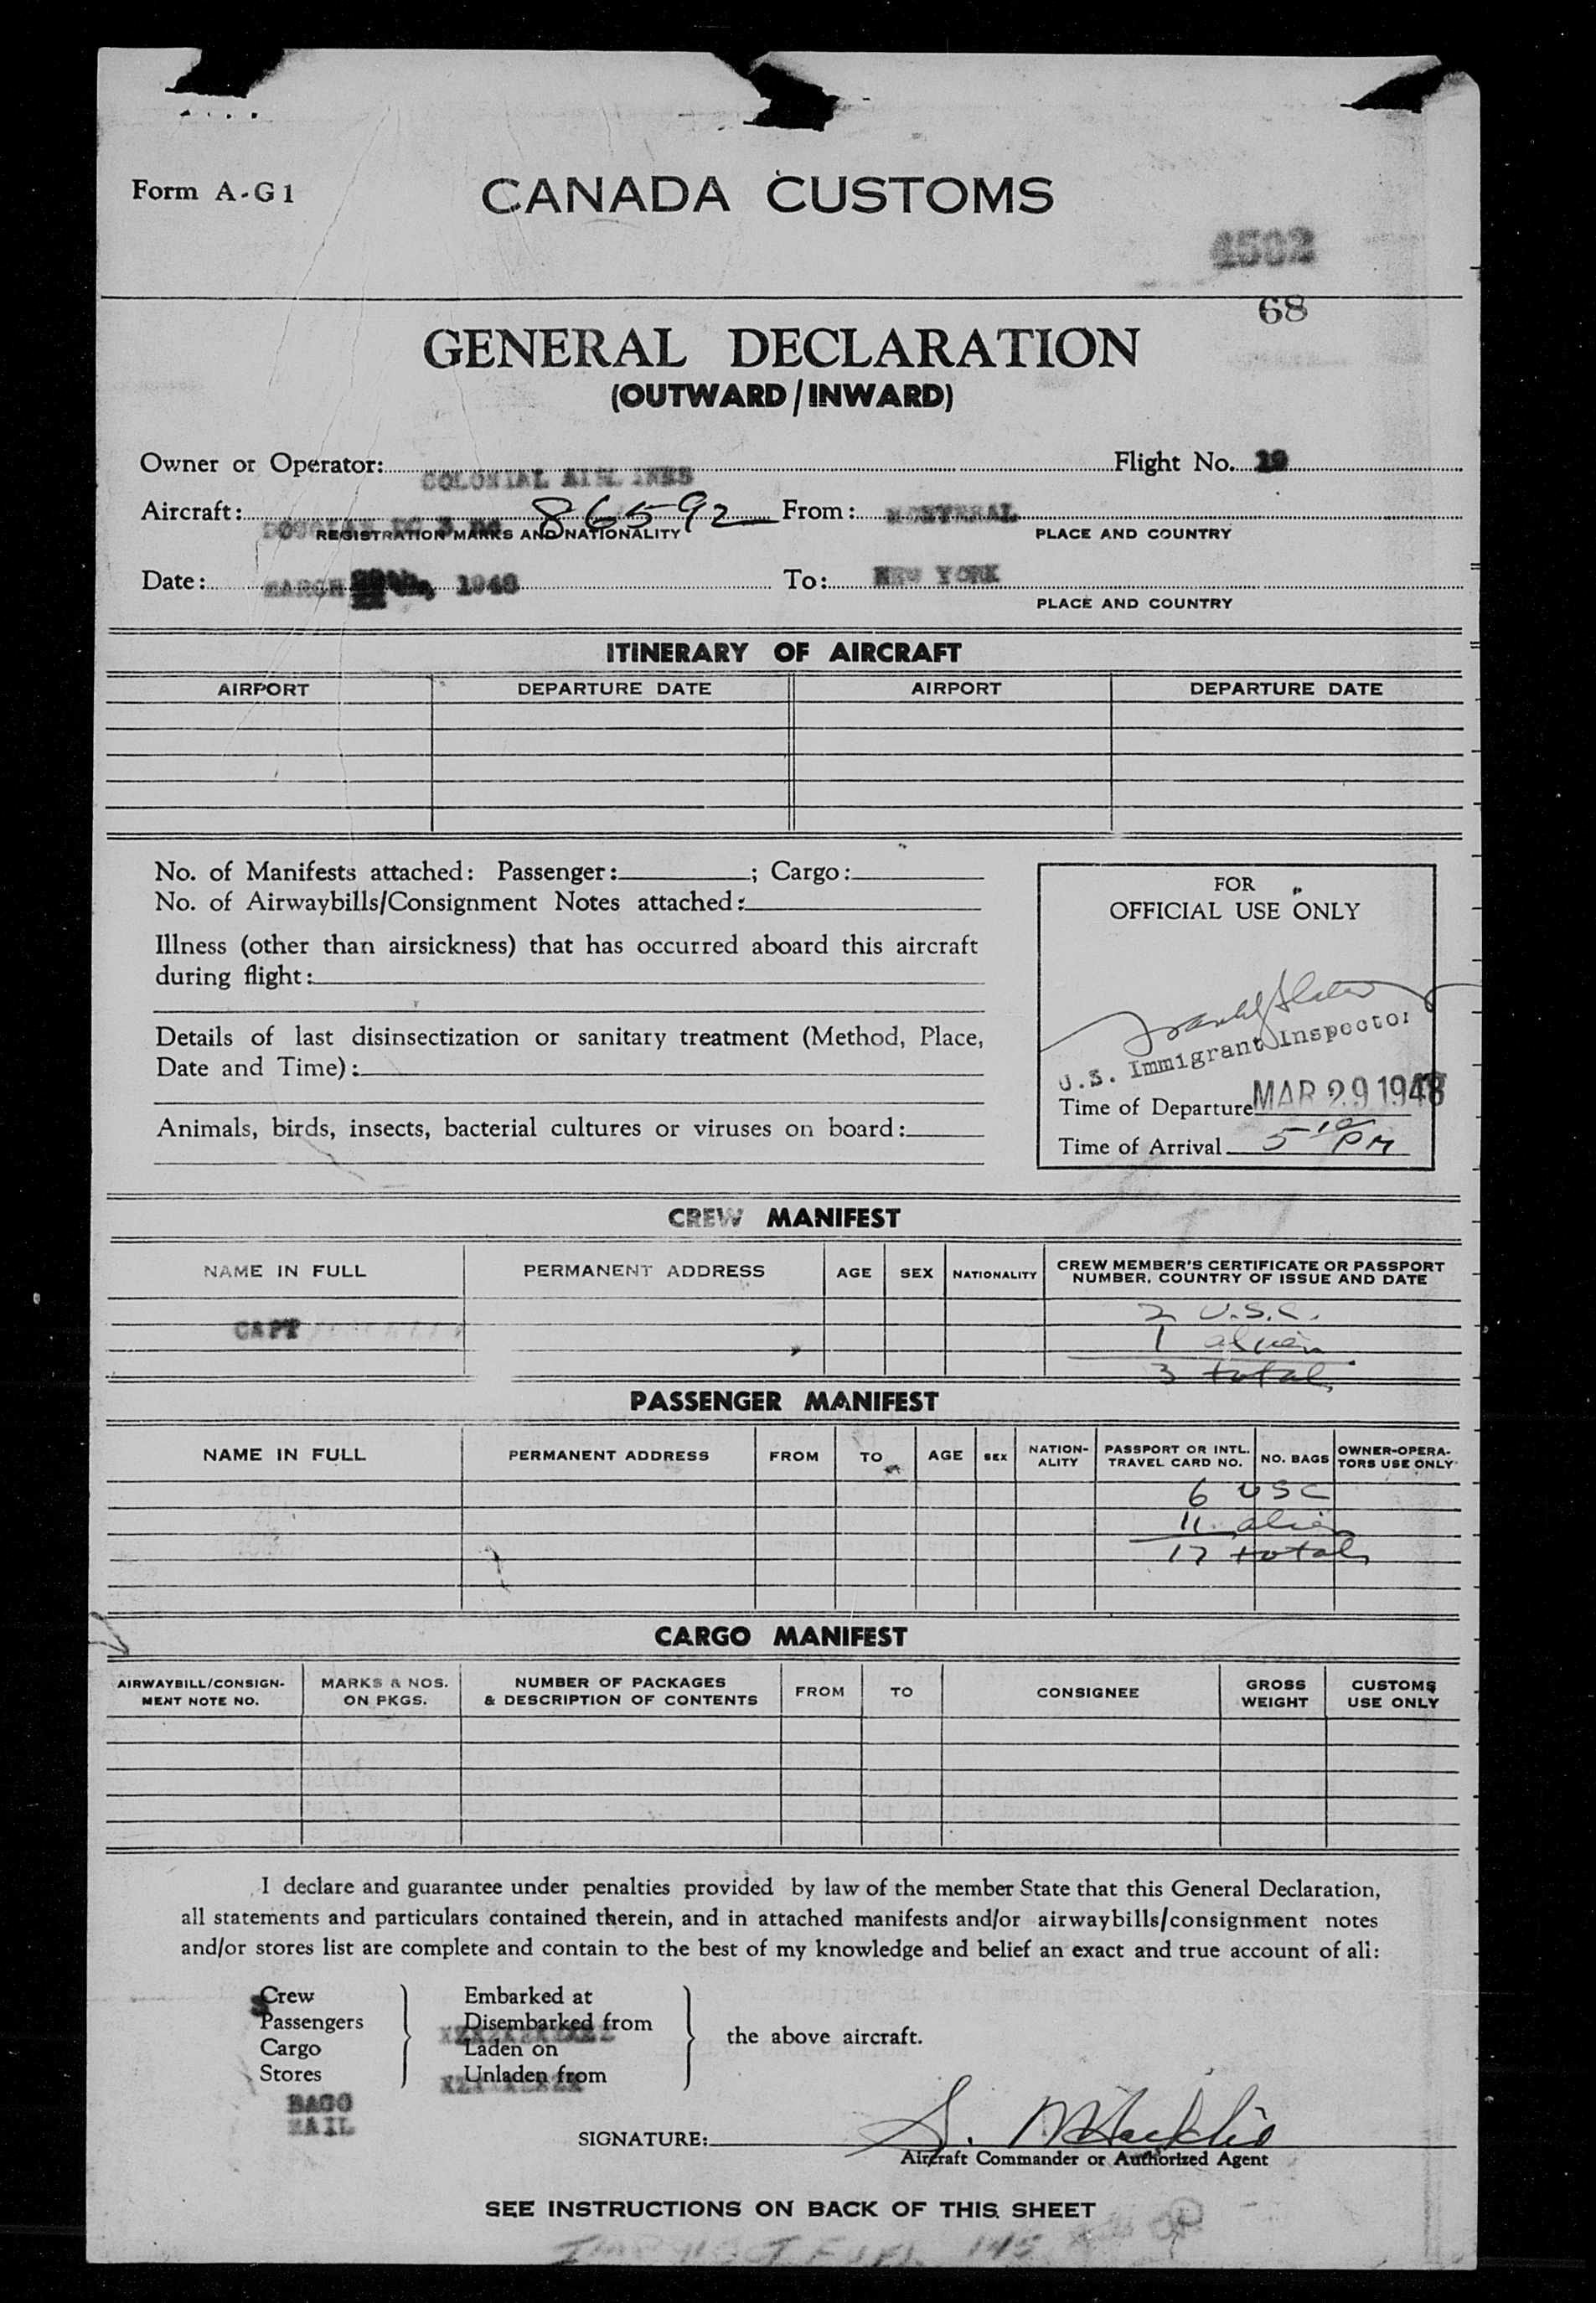 Form A-G1
CANADA CUSTOMS
4502
68
GENERAL DECLARATION
(OUTWARD/INWARD)
Owner or Operator: COLONIAL AIRLINES Flight No. 19
Aircraft: DOUGLAS DC 3 No 86592 From: MONTREAL
REGISTRATION MARKS AND NATIONALITY PLACE AND COUNTRY
Date: MARCH 1948 To: NEW YORK
PLACE AND COUNTRY
ITINERARY OF AIRCRAFT
AIRPORT DEPARTURE DATE AIRPORT DEPARTURE DATE
No. of Manifests attached: Passenger: ; Cargo:
No. of Airwaybills/Consignment Notes attached:
Illness (other than airsickness) that has occurred aboard this aircraft
during flight:
Details of last disinsectization or sanitary treatment (Method, Place,
Date and Time):
Animals, birds, insects, bacterial cultures or viruses on board:
FOR
OFFICIAL USE ONLY
U.S. Immigrant Inspector
Time of Departure MAR 29 1948
Time of Arrival 5 10 PM
CREW MANIFEST
NAME IN FULL PERMANENT ADDRESS AGE SEX NATIONALITY CREW MEMBER'S CERTIFICATE OR PASSPORT NUMBER, COUNTRY OF ISSUE AND DATE
2 U.S.C.
CAPT 1 alien
3 total
PASSENGER MANIFEST
NAME IN FULL PERMANENT ADDRESS FROM TO AGE SEX NATION-ALITY PASSPORT OR INTL. TRAVEL CARD NO. NO. BAGS OWNER-OPERA-TORS USE ONLY
6 USC
11 alien
17 total
CARGO MANIFEST
AIRWAYBILL/CONSIGN-MENT NOTE NO. MARKS & NOS. ON PKGS. NUMBER OF PACKAGES & DESCRIPTION OF CONTENTS FROM TO CONSIGNEE GROSS WEIGHT CUSTOMS USE ONLY
I declare and guarantee under penalties provided by law of the member State that this General Declaration,
all statements and particulars contained therein, and in attached manifests and/or airwaybills/consignment notes
and/or stores list are complete and contain to the best of my knowledge and belief an exact and true account of all:
Crew Embarked at
Passengers Disembarked from
the above aircraft.
Cargo Laden on
Stores Unladen from
BAGG
MAIL
SIGNATURE:
Aircraft Commander or Authorized Agent
SEE INSTRUCTIONS ON BACK OF THIS SHEET